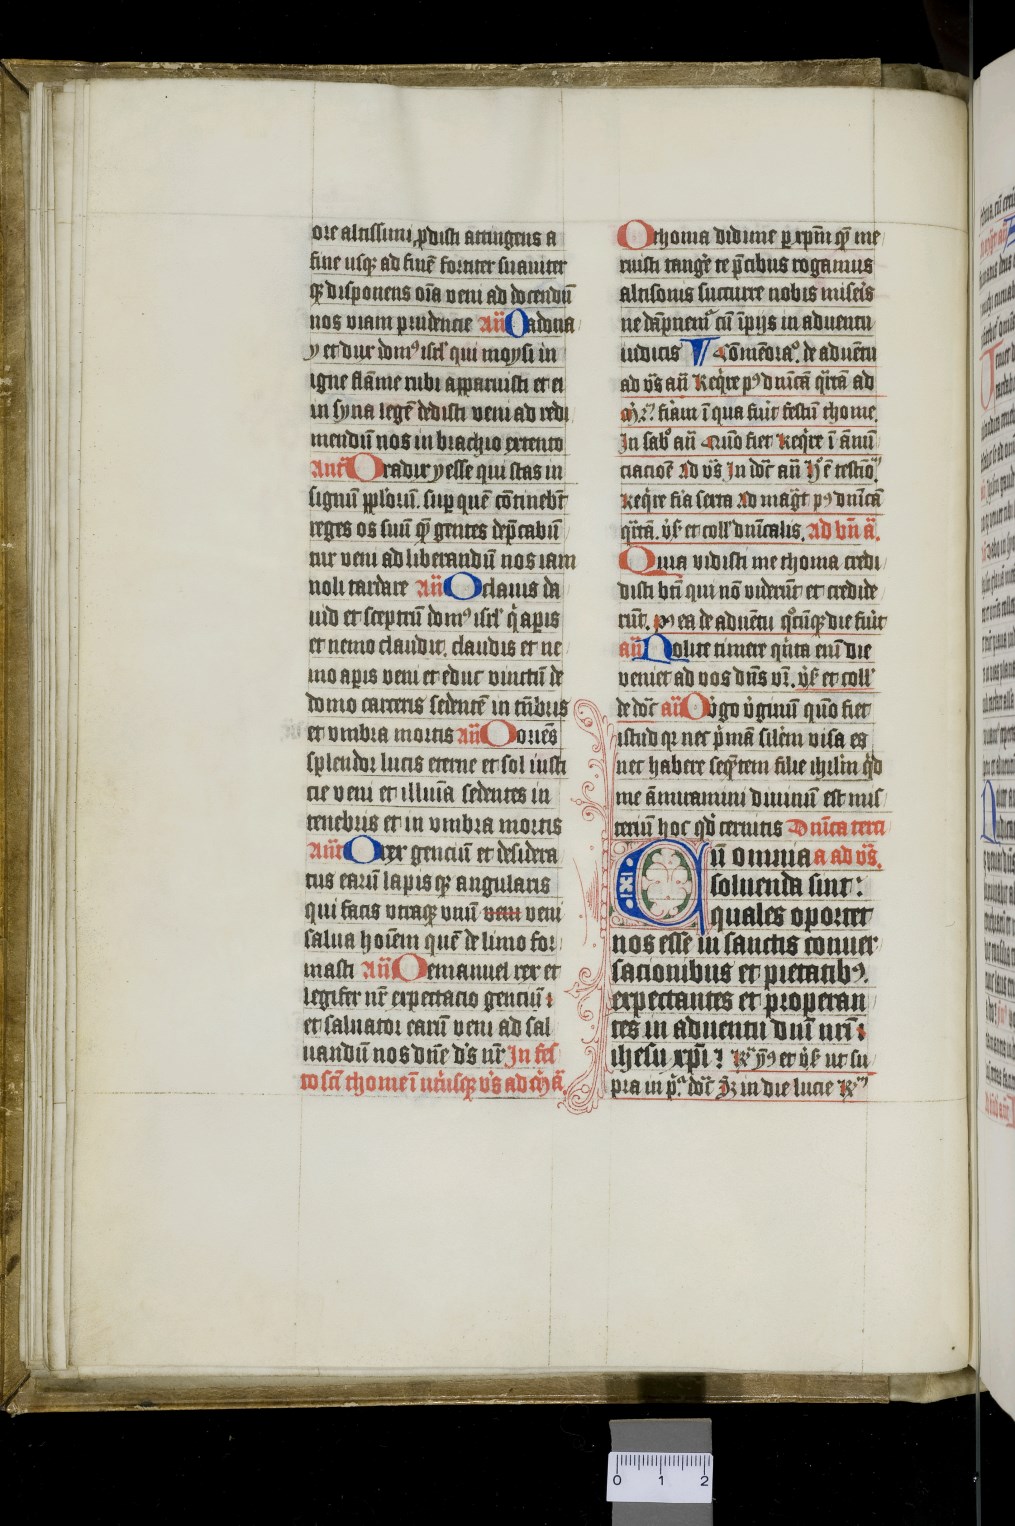 ore altissimi ꝓdisti attingens a
fine usqꝫ ad finē fortiter suauiter
qꝫ disponens oīa veni ad docendū
nos viam prudencie An̄ O adona
y et dux domꝰ isrl̄ qui moysi in
igne flāme rubi apparuisti et ei
in syna legē dedisti veni ad redi
mendū nos in brachio extento
Ant̄ O radix yesse qui stas in
signū pplōrū. suꝑ quē cōtinebt̄
reges os suū quē gentes dep̄cabū
tur veni ad liberandū nos iam
noli tardare An̄ O clauis da
uid et sceptrū domꝰ isrl̄ qͥ apis
et nemo claudit. claudis et ne
mo apis veni et educ vinctū de
domo carceris sedentē in tn̄bris
et vmbra mortis an̄ O oriēs
splendor lucis eterne et sol iusti
cie veni et illuīa sedentes in
tenebris et in vmbra mortis
Ant̄ O rex genciū et desidera
tus earū lapis qꝫ angularis
qui facis vtraqꝫ vnū veni veni
salua hoīem quē de limo for
masti An̄ O emanuel rex et
legifer nr̄ expectacio genciū:
et saluator earū veni ad sal
uandū nos dn̄e ds̄ nr̄ In fes
to sct̄i thome ī utrisqꝫ vs̄
O thoma didime per xpm̄ quē me
ruisti tangere p̄cibus rogamus
altisonis succurre nobis miseris
ne dāpnemͬ cū īpijs in aduentu
iudicis Cōmēoraͦ. de aduētu
ad vs̄ an̄ Reqͥre pꝰ dnīcā qͣrtā ad
fiam ī qua fuit festū thome
In sabͦ an̄ Quō fiet Reqͥre ī ānū
ciacioē Ad vs̄ In
Reqͥre fia sexta Ad magͭ pꝰ dnīcā
qͣrtā. et coll̄ dnīcalis. Ad bn̄ a.
Quia vidisti me thoma credi
disti bt̄i qui nō viderūt et credide
rūt. pꝰ ea de aduētu qͦcūqꝫ die fuit
an̄ Nolite timere qͥnta enī die
veniet ad vos dn̄s et coll̄
an̄ O vͦgo vͦginū quō fiet
istud qꝫ nec pͥmā silēm visa es
nec habere seqͣtem filie ihrlm̄ qͥd
me āmiramini diuinū est mis
teriū hoc qd̄ cernitis Dnīca terci
a ad vs̄.
Cū omnia
soluenda sint:
quales oportet
nos esse in sanctis conuer
sacionibus et pietatibꝰ.
expectantes et properan
tes in aduentū dnī nrī:
ihesu xp̄i: ut su
pra in in die lucie